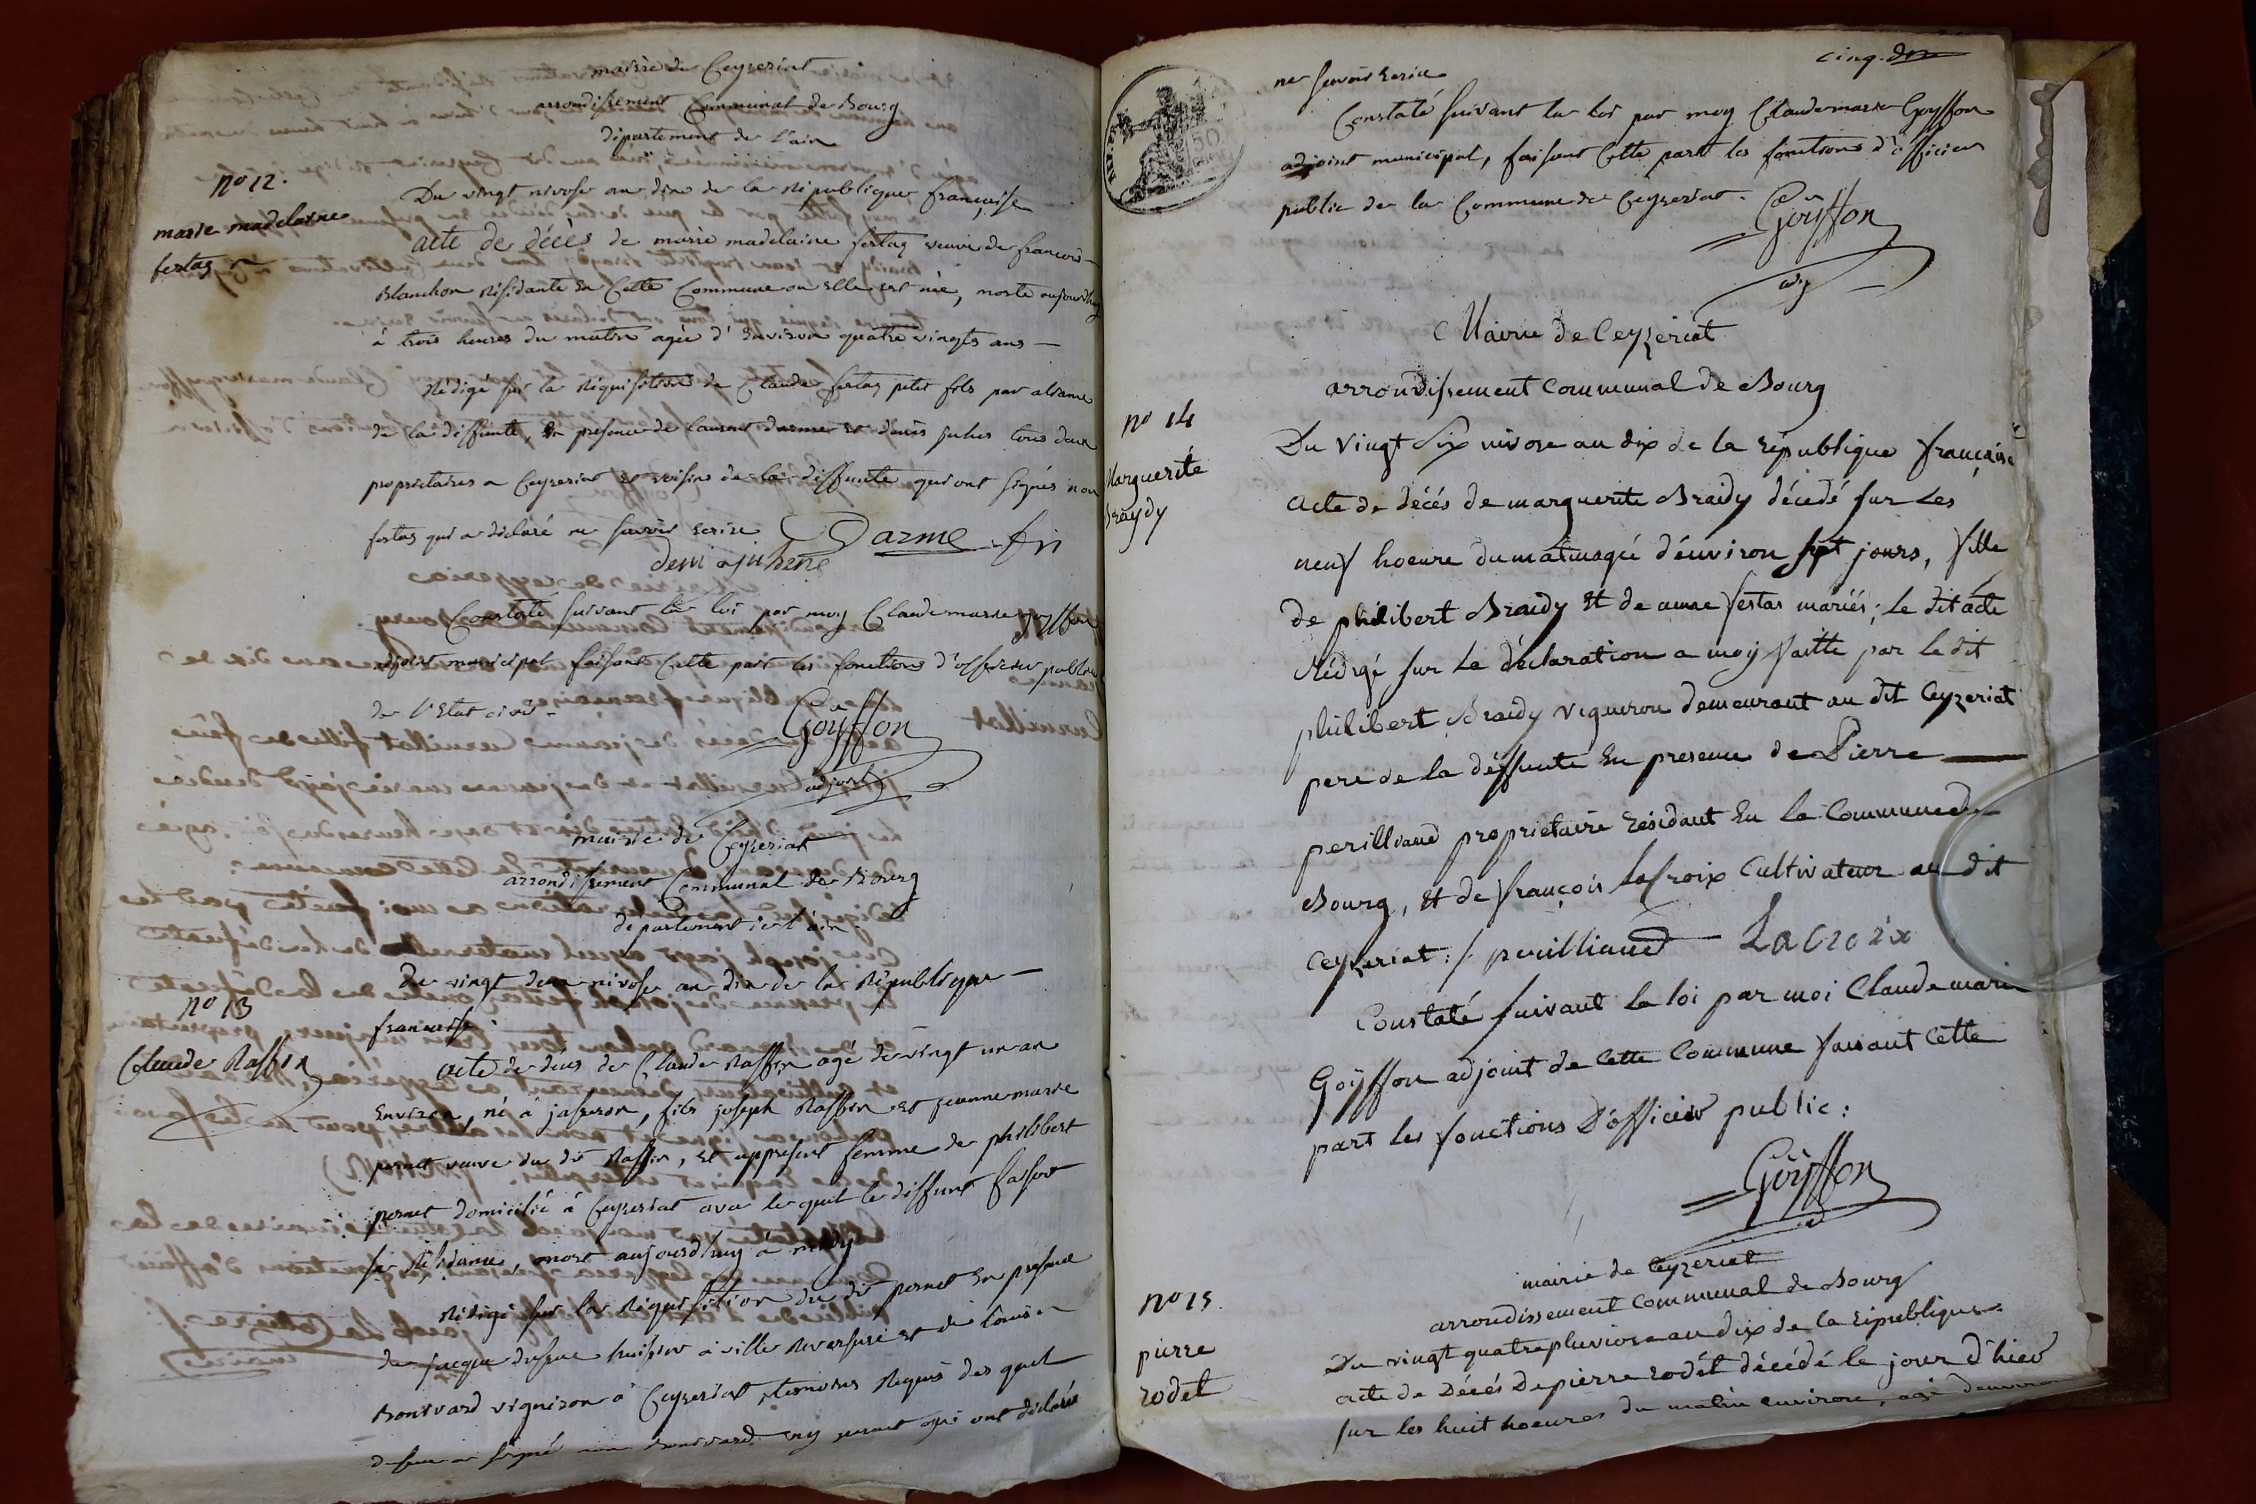 mairie de Ceyzeriat
arrondissement Communal de Bourg
département de l'ain
No 12.
marie madelaine
festaz
Du vingt nivose an dix de la République française
acte de décès de marie madelaine festaz veuve de francois
Blanchon résidante en Cette Commune ou elle est née, morte aujourdhuy
à trois heures du matin agée d'environ quatre vingts ans —
Rédigé sur la Réquisition de Claude festaz petit fils par alliance
de la diffunte, en présence de laurent darme et denis juhes tous deux
proprietaires a Ceyzeriat et voisins de la diffunte qui ont signés non
festaz qui a déclaré ne savoir ecrire Darme
Constaté suivant la loi par moy Claude marie goyffon
adjoint municipal faisant Cette part les fonctions d'officier public
de l'Etat civil
Goÿffon
adjoint
mairie de Ceyzeriat
arrondissement Communal de Bourg
département de l'ain
No 13
Claude Raffin
Du vingt deux nivose an dix de la République —
francaise.
acte de déces de Claude Raffin agé de vingt un an
Environ, né à jasseron, fils joseph Raffin et jeanne marie
pernet veuve du dit Raffin, et appresent femme de philibert
pernet domicilié à Ceyzeriat avec lequel le diffunt faisoit
sa Résidance, mort aujourdhuy à midy
Rédigé sur la Réquisition du dit pernet en présence
de jacque dufour huissier à ville Reversure et de louis
Bonivard vigniron à Ceyzeriat, temoins Requis des quel
dufour a signé non Bonivard ny pernet qui ont déclarés
cinq.
ne savoir ecrire
Constaté suivant la loi par moy Claude marie Goyffon
adjoint municipal, faisant Cette part les fonctions d'officier
public de la Commune de Ceyzeriat.
Goÿffon
adj
Mairie de Ceyzeriat
arrondissement communal de Bourg
no 14
Marguerite
Braydy
Du vingt Six nivose an dix de la république française
acte de décés de marguerite Braidy décedé sur les
neuf hoeure du matin agé d'environ sept jours, fille
de philibert Braidy et de anne festas mariés; le dit acte
Rédigé sur la déclaration a moy faitte par le dit
philibert Braidy vigneron demeurant au dit Ceyzeriat
pere de la déffunte en presence de Pierre —
perilliaud proprietaire résidant en la Commune de
Bourg, et de françois lacroix Cultivateur au dit
Ceyzeriat: / perilliaud Lacroix
Constaté suivant la loi par moi Claude marie
Goÿffon adjoint de Cette Commune faisant Cette
part les fonctions D'officier public:
Goÿffon
mairie de Ceyzeriat
arrondissement communal de Bourg
no 15.
pierre
rodet
Du vingt quatre pluviose an dix de la république.
acte de Décés De pierre rodet décédé le jour d'hier
sur les huit hoeures du matin environ, agé denviron